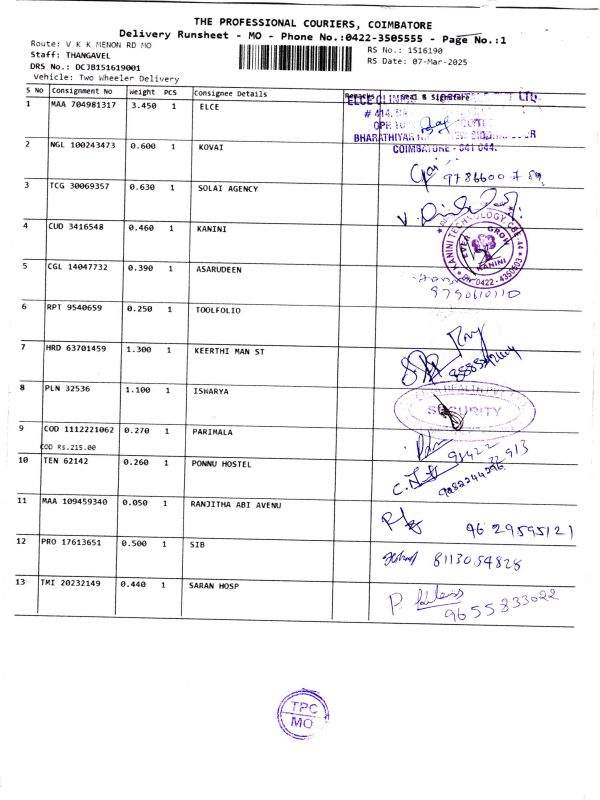 THE PROFESSIONAL COURIERS, COIMBATORE
Delivery Runsheet - MO - Phone No.:0422-3505555 - Page No.:1
Route: V K K MENON RD MO
Staff: THANGAVEL
DRS No.: DCJB151619001
Vehicle: Two Wheeler Delivery
RS No.: 1516190
RS Date: 07-Mar-2025
S No Consignment No Weight PCS Consignee Details Remarks Seal & Signature
1 MAA 704981317 3.450 1 ELCE
# 414,
COIMBATORE - 641 044.
2 NGL 100243473 0.600 1 KOVAI
3 TCG 30069357 0.630 1 SOLAI AGENCY
4 CUD 3416548 0.460 1 KANINI
KANINI TECHNOLOGY CBE-44
EVER GROW
KANINI
PH: 0422-4350603
5 CGL 14047732 0.390 1 ASARUDEEN
6 RPT 9540659 0.250 1 TOOLFOLIO
7 HRD 63701459 1.300 1 KEERTHI MAN ST
8 PLN 32536 1.100 1 ISHARYA
SECURITY
9 COD 1112221062 0.270 1 PARIMALA
COD Rs.215.00
10 TEN 62142 0.260 1 PONNU HOSTEL
9282244296
11 MAA 109459340 0.050 1 RANJITHA ABI AVENU
9629595121
12 PRO 17613651 0.500 1 SIB
8113054828
13 TMI 20232149 0.440 1 SARAN HOSP
9655833022
TPC
MO